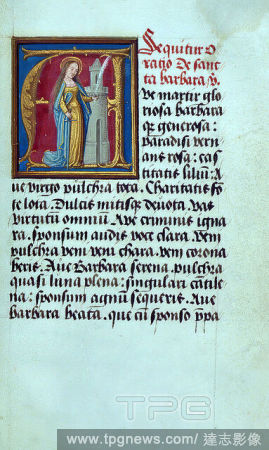 Sequitur o
ratio de sanc
ta barbara v.
ve martir glo
riosa barbara
que generosa:
paradisi ver
ans rosa: cas
titatis lilium: A
ue virgo pulchra tota. Charitatis fo
te lota. Dulcis mitisque devota, vas
virtutum omnium. Ave criminis igna
ra. sponsum audis voce clara. veni
pulchra veni chara. veni corona
beris. Aue Barbara serena. pulchra
quasi luna plena: singulari catile
na: sponsum agnum sequeris. Aue
barbara beata. que cum sponso ppa
TPG
www.tpgnews.com/ 達志影像